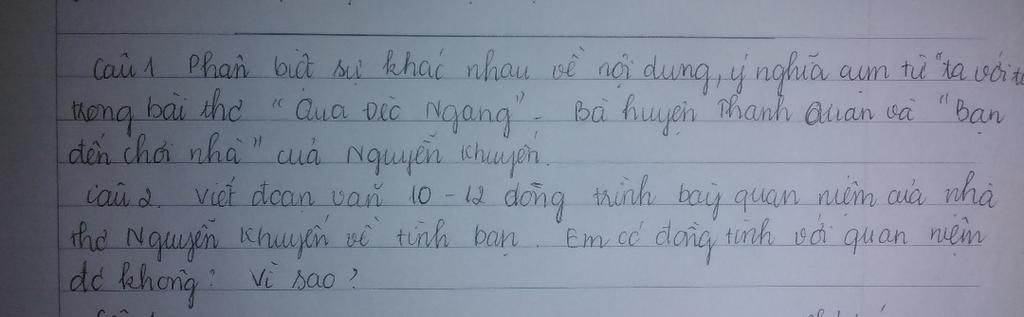 Câu 1 Phân biệt sự khác nhau về nội dung, ý nghĩa cụm từ "ta với ta
trong bài thơ "Qua Đèo Ngang" - Bà huyện Thanh Quan và "Bạn
đến chơi nhà" của Nguyễn Khuyến.
Câu 2. Viết đoạn văn 10 - 12 dòng trình bày quan niệm của nhà
thơ Nguyễn Khuyến về tình bạn. Em có đồng tình với quan niệm
đó không? Vì sao?